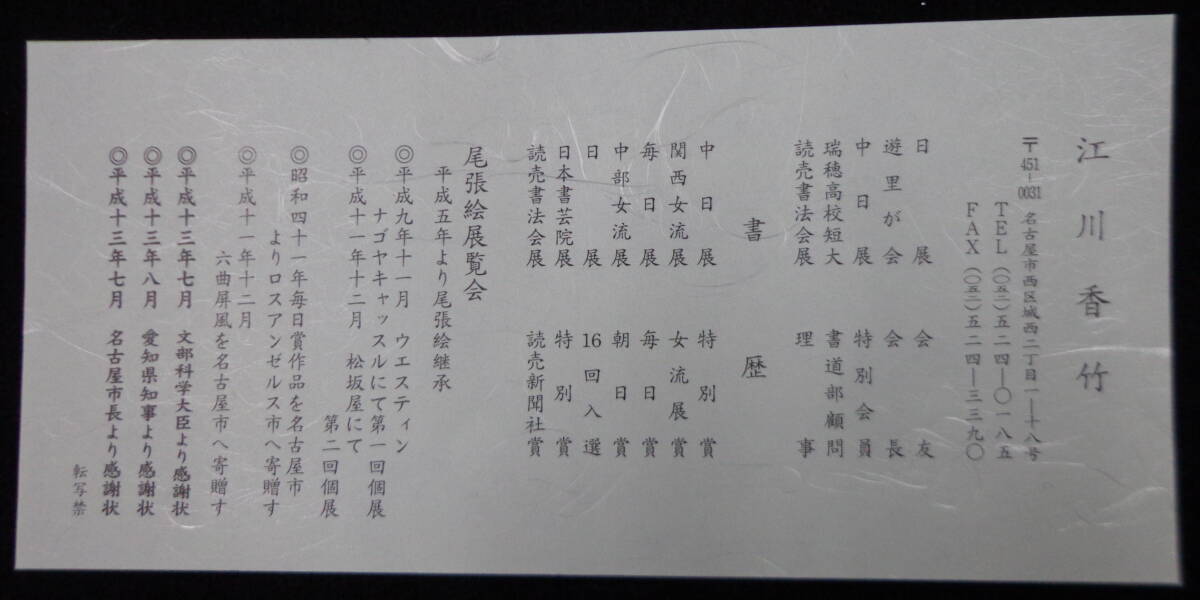 江川香竹
〒451-0031 名古屋市西区城西二丁目一―十八号
TEL(〇五二)五二四―〇一八五
FAX(〇五二)五二四―三三九〇
日展 会友
遊里が会 会長
中日展 特別会員
瑞穂高校短大 書道部顧問
読売書法会展 理事
書歴
中日展 特別賞
関西女流展 女流展賞
毎日展 毎日賞
中部女流展 朝日賞
日展 16回入選
日本書芸院展 特別賞
読売書法会展 読売新聞社賞
尾張絵展覧会
平成五年より尾張絵継承
◎平成九年十一月 ウエスティン
ナゴヤキャッスルにて第一回個展
◎平成十一年十二月 松坂屋にて
第二回個展
◎昭和四十一年毎日賞作品を名古屋市
よりロスアンゼルス市へ寄贈す
◎平成十一年十二月
六曲屏風を名古屋市へ寄贈す
◎平成十三年七月 文部科学大臣より感謝状
◎平成十三年八月 愛知県知事より感謝状
◎平成十三年七月 名古屋市長より感謝状
転写禁